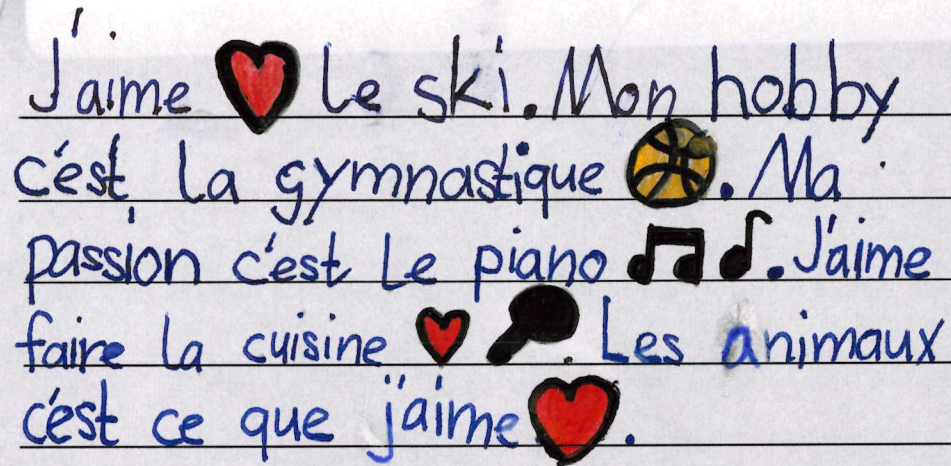 J'aime le ski. Mon hobby
c'est la gymnastique. Ma
passion c'est le piano. J'aime
faire la cuisine. Les animaux
c'est ce que j'aime.